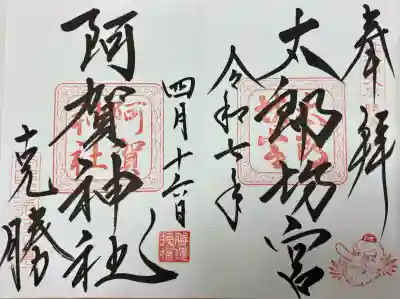 奉拝
太郎坊宮
令和七年
四月十六日
阿賀神社
克勝
阿賀神社